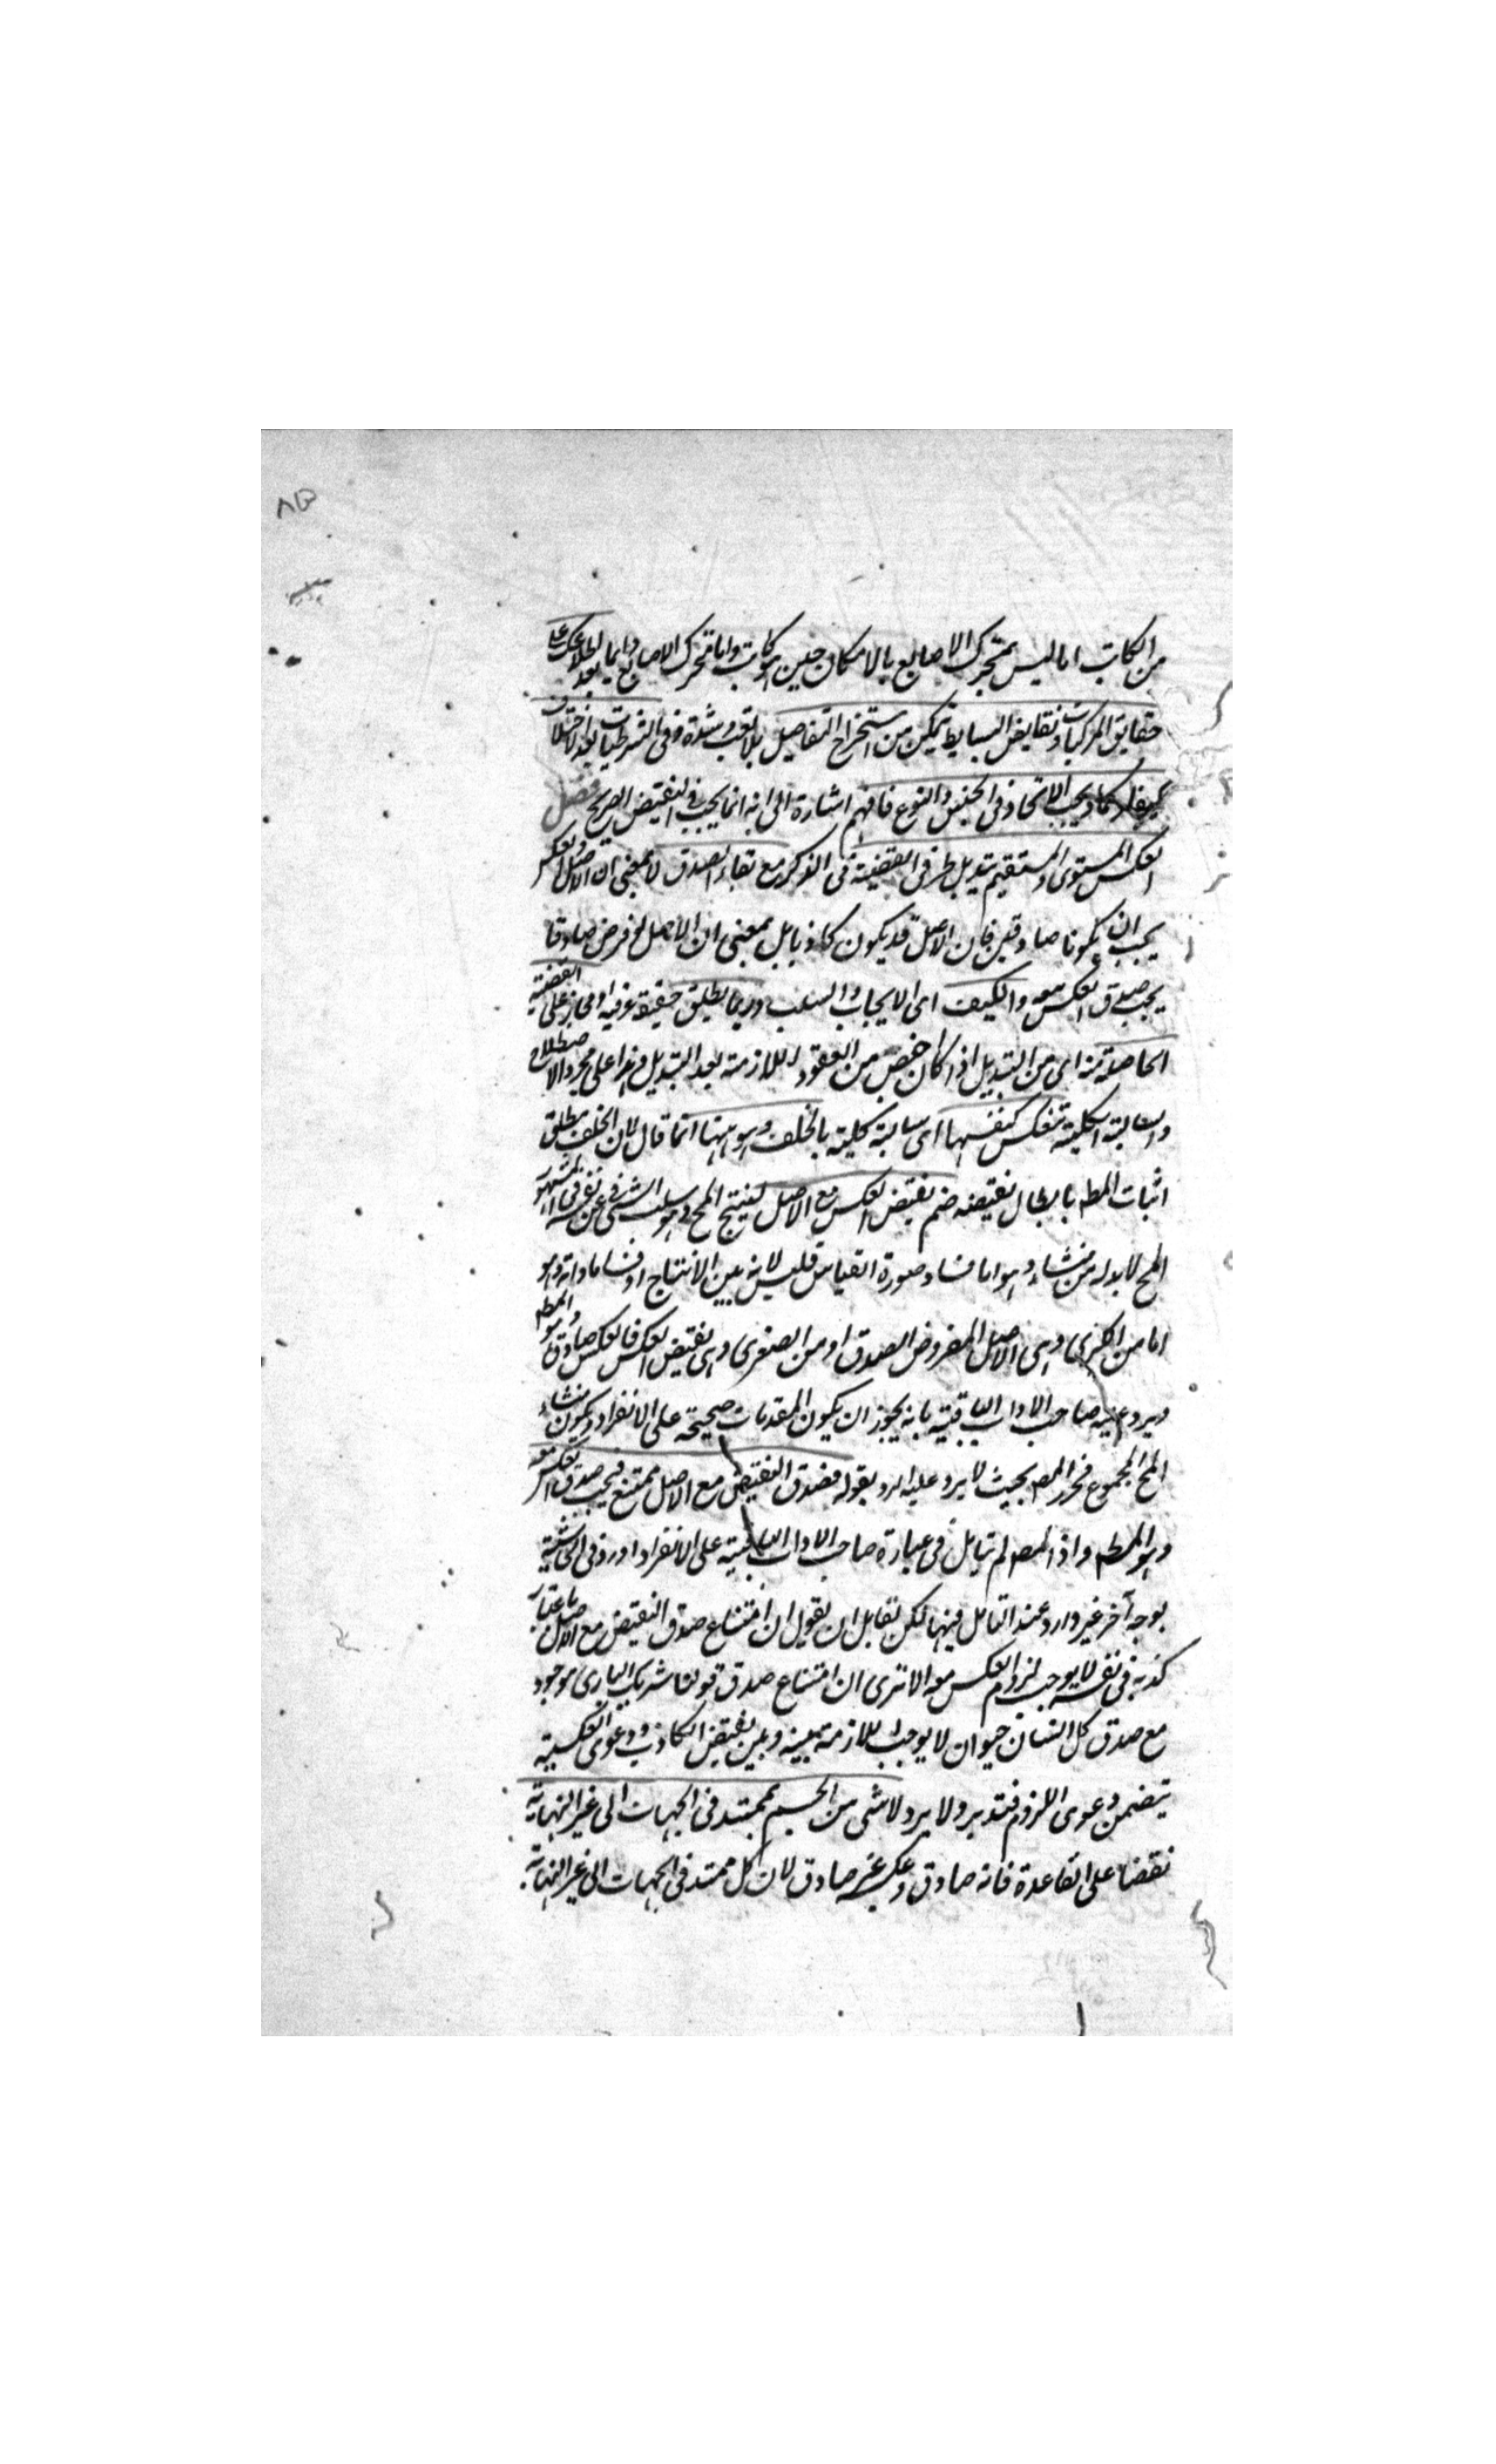 ٨٥
من الكاتب اما ليس بمتحرك الاصابع بالامكان حين هو كاتب واما متحرك الاصابع دايما بعد اطلاعك على
حقايق المركبات ونقايض البسايط تتمكن من استخراج التفاصيل بلا تعب وشدة وفى الشرطيات بعد لاختلاف
كيفا وكما ويجب الاتحاد فى الجنس والنوع فافهم اشارة الى انه انما يجب فى النقيض الصريح فصل
العكس المستوى والمستقيم تبديل طرفى القضية فى الذكر مع بقاء الصدق لا بمعنى ان الاصل والعكس
يجب ان يكونا صادقين فان الاصل قد يكون كاذبا بل بمعنى ان الاصل لو فرض صادقا
يجب صدق العكس معه والكيف اى الايجاب والسلب وربما يطلق حقيقة عرفية او مجازا على القضية
الحاصلة منه اى من التبديل اذا كان اخص من العقود اللازمة بعد التبديل وهذا على مجرد الاصطلاح
والسالبة الكلية تنعكس كنفسها اى سالبة كلية بالخلف وهو ههنا انما قال لان الخلف مطلق
اثبات المط بابطال نقيضه ضم نقيض العكس مع الاصل لينتج المح وهو سلب الشئ عن نفسه فى المشهور
المح لا بد له من منشاء وهو اما فساد صورة القياس فليس لانه بين الانتاج او فساد مادته وهو
اما من الكبرى وهى الاصل المفروض الصدق او من الصغرى وهى نقيض العكس فالعكس صادق وهو المط
ويرد عليه صاحب الاداب الباقية بانه يجوز ان يكون المقدمات صحيحة على الانفراد ويكون منشاء
المح المجموع فحرر المص بحيث لا يرد عليه الرد بقوله فصدق النقيض مع الاصل ممتنع فيجب صدق العكس معه
وهو المط واذ المص لم يتامل فى عبارة صاحب الاداب الباقية على الانفراد اورد فى الحاشية
بوجه آخر غير وارد عند التامل فيها لكن لقايل ان يقول ان امتناع صدق النقيض مع الاصل باعتبار
كذبه فى نفسه لا يوجب لزوم العكس معه الا ترى ان امتناع صدق قولنا شريك البارى موجود
مع صدق كل انسان حيوان لا يوجب الملازمة بينه وبين نقيض الكاذب ودعوى العكسية
يتضمن دعوى اللزوم فتدبر ولا يرد لا شى من الجسم بممتد فى الجهات الى غير النهاية
نقضا على القاعدة فانه صادق وعكسه غير صادق لان كل ممتد فى الجهات الى غير النهاية